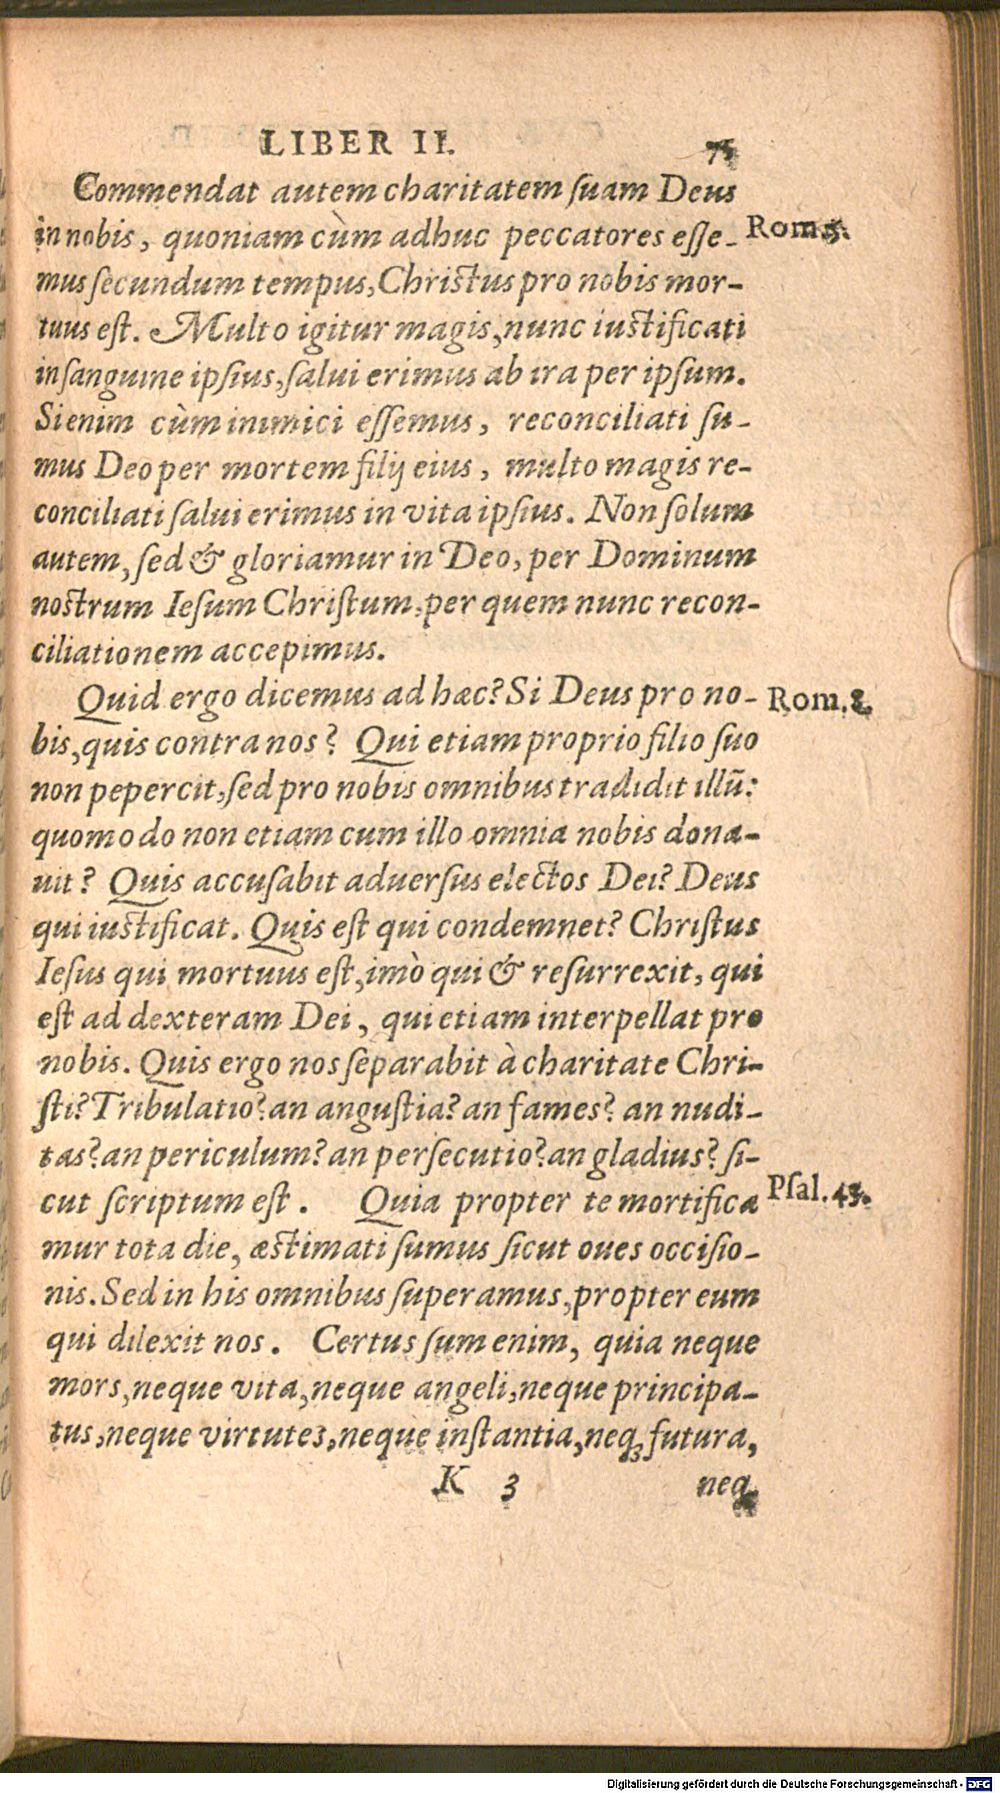 LIBER II. 75
Commendat autem charitatem ſuam Deus
in nobis, quoniam cùm adhuc peccatores eſſe- Rom. 5.
mus ſecundum tempus, Chriſtus pro nobis mor-
tuus eſt. Multo igitur magis, nunc iuſtificati
in ſanguine ipſius, ſalui erimus ab ira per ipſum.
Si enim cùm inimici eſſemus, reconciliati ſu-
mus Deo per mortem filij eius, multo magis re-
conciliati ſalui erimus in vita ipſius. Non ſolum
autem, ſed & gloriamur in Deo, per Dominum
noſtrum Ieſum Chriſtum, per quem nunc recon-
ciliationem accepimus.
Quid ergo dicemus ad hæc? Si Deus pro no- Rom. 8.
bis, quis contra nos? Qui etiam proprio filio ſuo
non pepercit, ſed pro nobis omnibus tradidit illū:
quomodo non etiam cum illo omnia nobis dona-
uit? Quis accuſabit aduerſus electos Dei? Deus
qui iuſtificat. Quis eſt qui condemnet? Chriſtus
Ieſus qui mortuus eſt, imò qui & reſurrexit, qui
eſt ad dexteram Dei, qui etiam interpellat pro
nobis. Quis ergo nos ſeparabit à charitate Chri-
ſti? Tribulatio? an anguſtia? an fames? an nudi-
tas? an periculum? an perſecutio? an gladius? ſi-
cut ſcriptum eſt. Quia propter te mortifica Pſal. 43.
mur tota die, æſtimati ſumus ſicut oues occiſio-
nis. Sed in his omnibus ſuperamus, propter eum
qui dilexit nos. Certus ſum enim, quia neque
mors, neque vita, neque angeli, neque principa-
tus, neque virtutes, neque inſtantia, neqꝫ futura,
K 3 neqꝫ
Digitalisierung gefördert durch die Deutsche Forschungsgemeinschaft - DFG